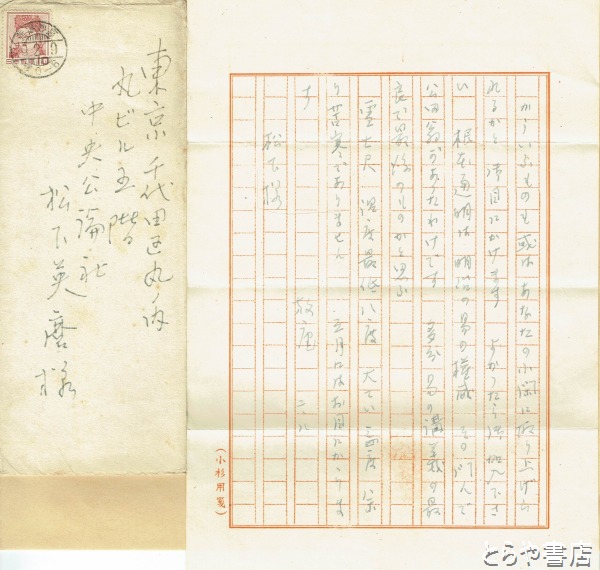 東京千代田区丸ノ内
丸ビル五階
中央公論社
松下英麿様
かういふものも或はあなたの小閑に取り上げら
れるかと御目にかけます よかつたら御覧下さ
い 根本通明は明治の易の権威 その門人で
公田翁がありたわけです 多分易の講義の最
良で最後のものかと思ふ
雪七尺 温度最低八度 大てい三四度 余
り苦寒でありません 五月にはお目にかかりま
す 放庵 二、九
松下様
(小杉用箋)
とらや書店